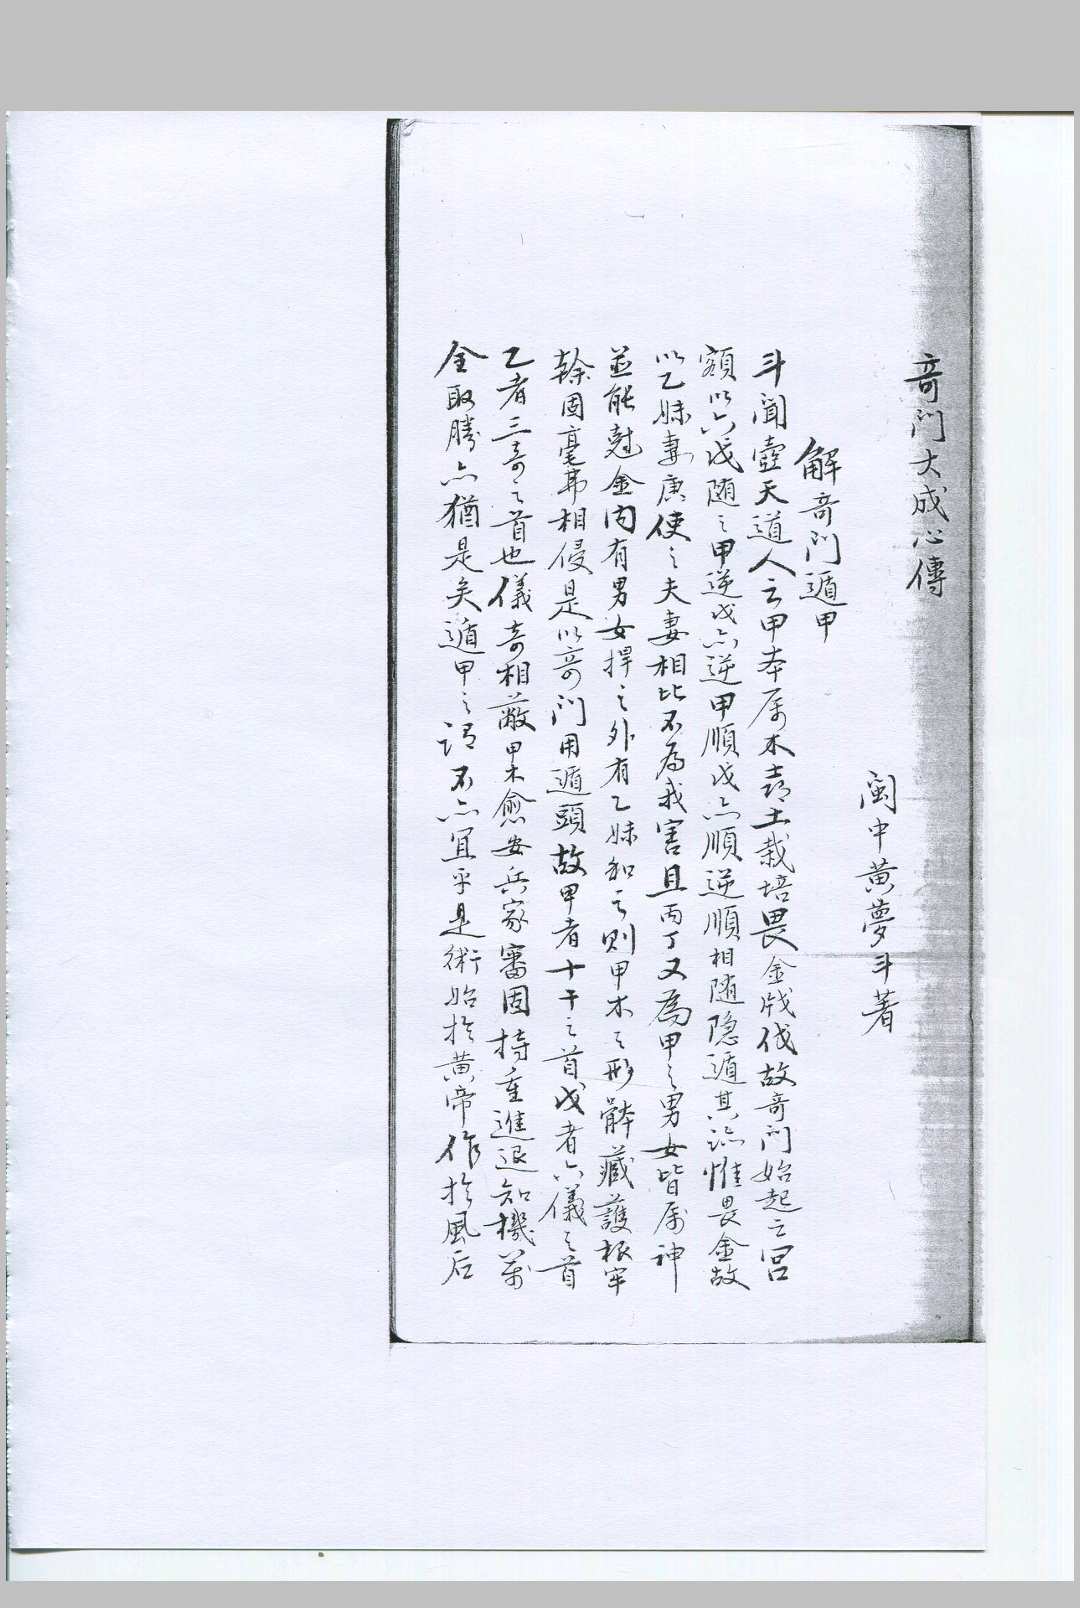 奇门大成心傳
閩中黃夢斗著
解奇门遁甲
斗聞壺天道人云甲本属木喜土栽培畏金戕伐故奇门始起之宮
額以六戊随之甲逆戊亦逆甲順戊亦順逆順相随隐遁其跡惟畏金故
以乙妹妻庚使之夫妻相比不為我害且丙丁又為甲之男女皆属神
並能尅金内有男女捍之外有乙妹和之则甲木之形骵藏護根牢
榦固毫弗相侵是以奇门用遁頭故甲者十干之首戊者六儀之首
乙者三奇之首也儀奇相蔽甲木愈安兵家審固持重進退知機萬
全取勝亦猶是矣遁甲之谓不亦宜乎是術始於黄帝作於風后